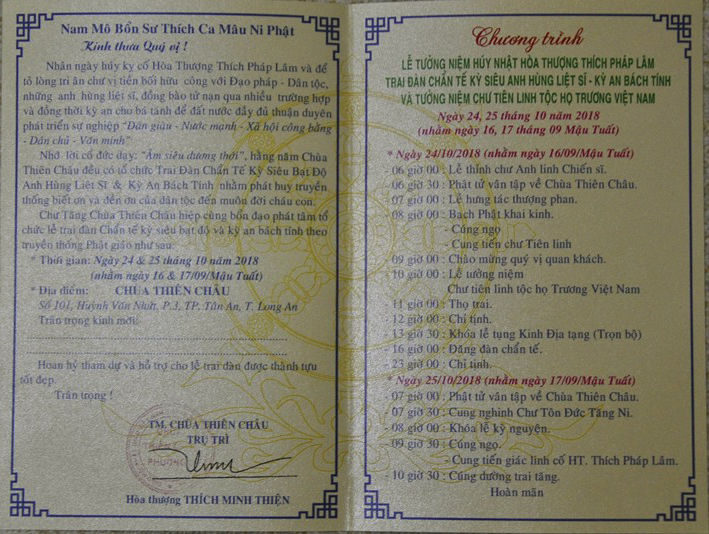 Nam Mô Bổn Sư Thích Ca Mâu Ni Phật
Kính thưa Quý vị !
Nhân ngày húy kỵ cố Hòa Thượng Thích Pháp Lâm và để
tỏ lòng tri ân chư vị tiền bối hữu công với Đạo pháp - Dân tộc,
những anh hùng liệt sĩ, đồng bào tử nạn qua nhiều trường hợp
và đồng thời kỳ an cho bá tánh để đất nước đầy đủ thuận duyên
phát triển sự nghiệp "Dân giàu - Nước mạnh - Xã hội công bằng
- Dân chủ - Văn minh"
Nhớ lời cổ đức dạy: "Âm siêu dương thới", hằng năm Chùa
Thiên Châu đều có tổ chức Trai Đàn Chẩn Tế Kỳ Siêu Bạt Độ
Anh Hùng Liệt Sĩ & Kỳ An Bách Tính nhằm phát huy truyền
thống biết ơn và đền ơn của dân tộc đến muôn đời cháu con.
Chư Tăng Chùa Thiên Châu hiệp cùng bổn đạo phát tâm tổ
chức lễ trai đàn Chẩn tế kỳ siêu bạt độ và kỳ an bách tính theo
truyền thống Phật giáo như sau:
* Thời gian: Ngày 24 & 25 tháng 10 năm 2018
(nhằm ngày 16 & 17/09/Mậu Tuất)
* Địa điểm: CHÙA THIÊN CHÂU
Số 101, Huỳnh Văn Nhứt, P.3, TP, Tân An, T. Long An
Trân trọng kính mời:
Hoan hỷ tham dự và hỗ trợ cho lễ trai đàn được thành tựu
tốt đẹp.
Trân trọng !
TM. CHÙA THIÊN CHÂU
TRỤ TRÌ
Hòa thượng THÍCH MINH THIỆN
Chương trình
LỄ TƯỞNG NIỆM HÚY NHẬT HÒA THƯỢNG THÍCH PHÁP LÂM
TRAI ĐÀN CHẨN TẾ KỲ SIÊU ANH HÙNG LIỆT SĨ - KỲ AN BÁCH TÍNH
VÀ TƯỞNG NIỆM CHƯ TIÊN LINH TỘC HỌ TRƯƠNG VIỆT NAM
Ngày 24, 25 tháng 10 năm 2018
(nhằm ngày 16, 17 tháng 09 Mậu Tuất)
* Ngày 24/10/2018 (nhằm ngày 16/09/Mậu Tuất)
- 06 giờ 00 : Lễ thỉnh chư Anh linh Chiến sĩ.
- 06 giờ 30 : Phật tử vân tập về Chùa Thiên Châu.
- 07 giờ 00 : Lễ hưng tác thượng phan.
- 08 giờ 00 : Bạch Phật khai kinh.
- Cúng ngọ
- Cung tiến chư Tiên linh
- 09 giờ 00 : Chào mừng quý vị quan khách.
- 10 giờ 00 : Lễ tưởng niệm
Chư tiên linh tộc họ Trương Việt Nam
- 11 giờ 00 : Thọ trai.
- 12 giờ 00 : Chỉ tịnh.
- 13 giờ 30 : Khóa lễ tụng Kinh Địa tạng (Trọn bộ)
- 16 giờ 00 : Đăng đàn chẩn tế.
- 23 giờ 00 : Chỉ tịnh.
* Ngày 25/10/2018 (nhằm ngày 17/09/Mậu Tuất)
- 07 giờ 00 : Phật tử vân tập về Chùa Thiên Châu.
- 07 giờ 30 : Cung nghinh Chư Tôn Đức Tăng Ni.
- 08 giờ 00 : Khóa lễ kỳ nguyện.
- 09 giờ 30 : Cúng ngọ.
- Cung tiến giác linh cố HT. Thích Pháp Lâm.
- 10 giờ 30 : Cúng dường trai tăng.
Hoàn mãn